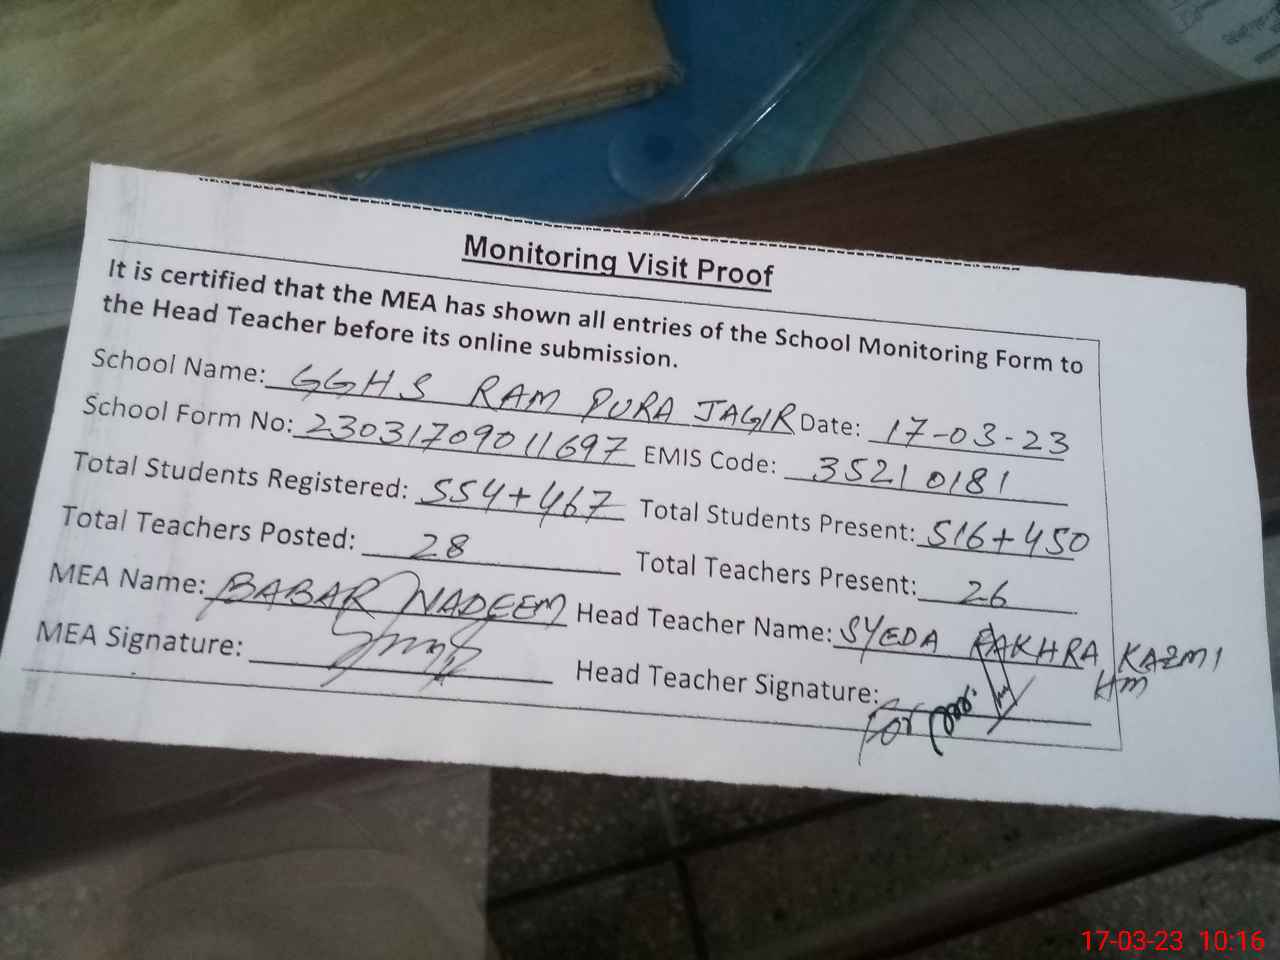 Monitoring Visit Proof
It is certified that the MEA has shown all entries of the School Monitoring Form to
the Head Teacher before its online submission.
School Name: GGHS RAM PURA JAGIR Date: 17-03-23
School Form No: 23031709011697 EMIS Code: 35210181
Total Students Registered: 554+467 Total Students Present: 516+450
Total Teachers Posted: 28 Total Teachers Present: 26
MEA Name: BABAR NADEEM Head Teacher Name: SYEDA FAKHRA KAZMI
HM
MEA Signature: Head Teacher Signature:
For
17-03-23 10:16